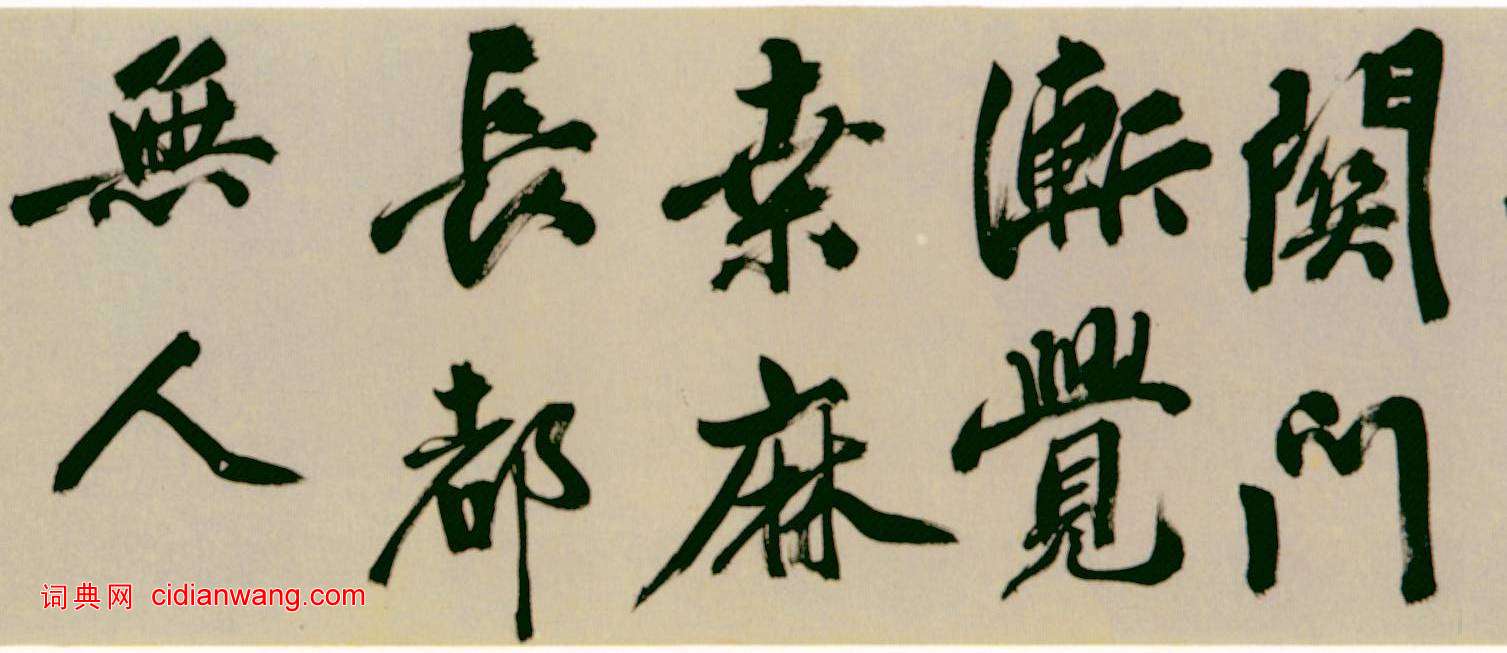 關門
漸覺
桒麻
長都
無人
词典网 cidianwang.com